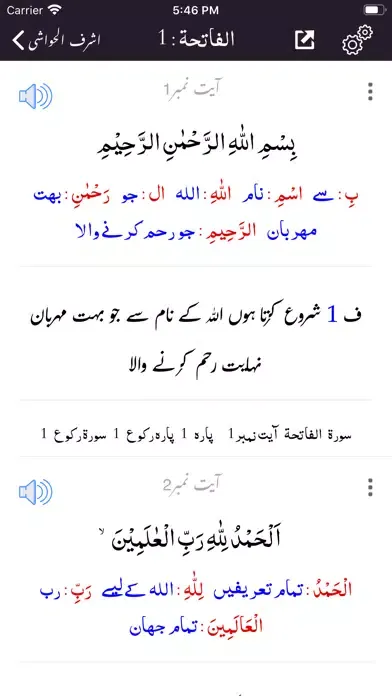 Carrier 5:46 PM
اشرف الحواشی الفاتحة : 1
آیت نمبر1
بِسْمِ اللهِ الرَّحْمٰنِ الرَّحِيْمِ
بِ: سے اسْمِ: نام اللهِ: الله ال: جو رَحْمٰنِ: بهت
مهربان الرَّحِيمِ: جو رحم کرنے والا
ف 1 شروع کرتا ہوں اللہ کے نام سے جو بہت مہربان
نہایت رحم کرنے والا
سورة الفاتحة آیت نمبر1 پاره 1 پاره رکوع 1 سورة رکوع 1
آیت نمبر2
اَلْحَمْدُ لِلّٰهِ رَبِّ الْعٰلَمِيْنَ ۙ
الْحَمْدُ: تمام تعریفیں لِلّٰهِ: الله کے لیے رَبِّ: رب
الْعَالَمِينَ: تمام جهان